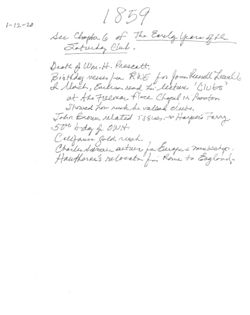 1859
1-12-20
See Chapter 6 of The Early Years of the
Saturday Club.
Death of Wm. H. Prescott.
Birthday verses from RWE for James Russell Lowell
In March, Emerson read his lecture "Clubs"
at the Freeman Place Chapel in Boston
showed how much he valued clubs.
John Brown related issues, Harpers Ferry
50th b-day of OWH
California gold rush
Charles Sumner returns from Europe
Hawthorne's relocation from Rome to England.